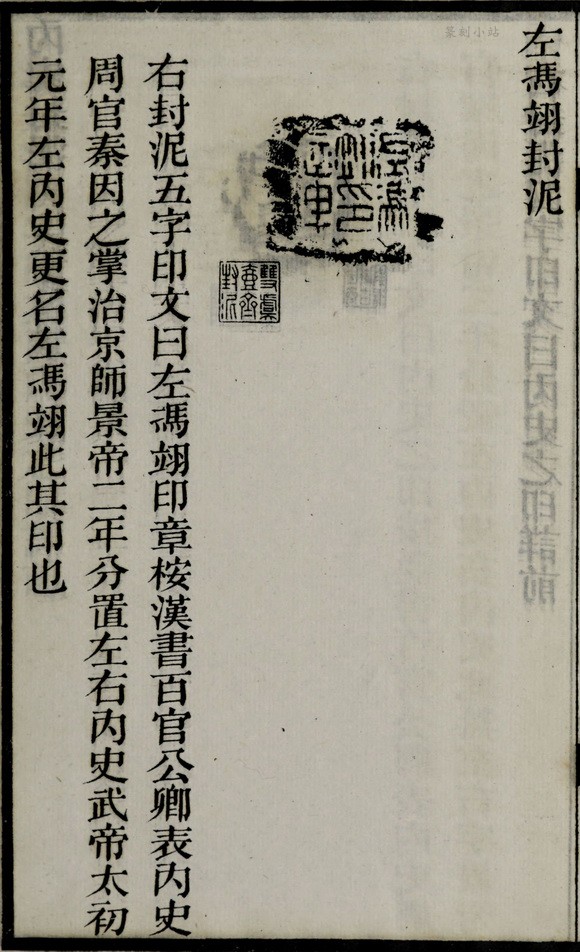 左馮翊封泥
篆刻小站
雙虞
壺齊
封泥
右封泥五字印文曰左馮翊印章桉漢書百官公卿表內史
周官秦因之掌治京師景帝二年分置左右內史武帝太初
元年左內史更名左馮翊此其印也